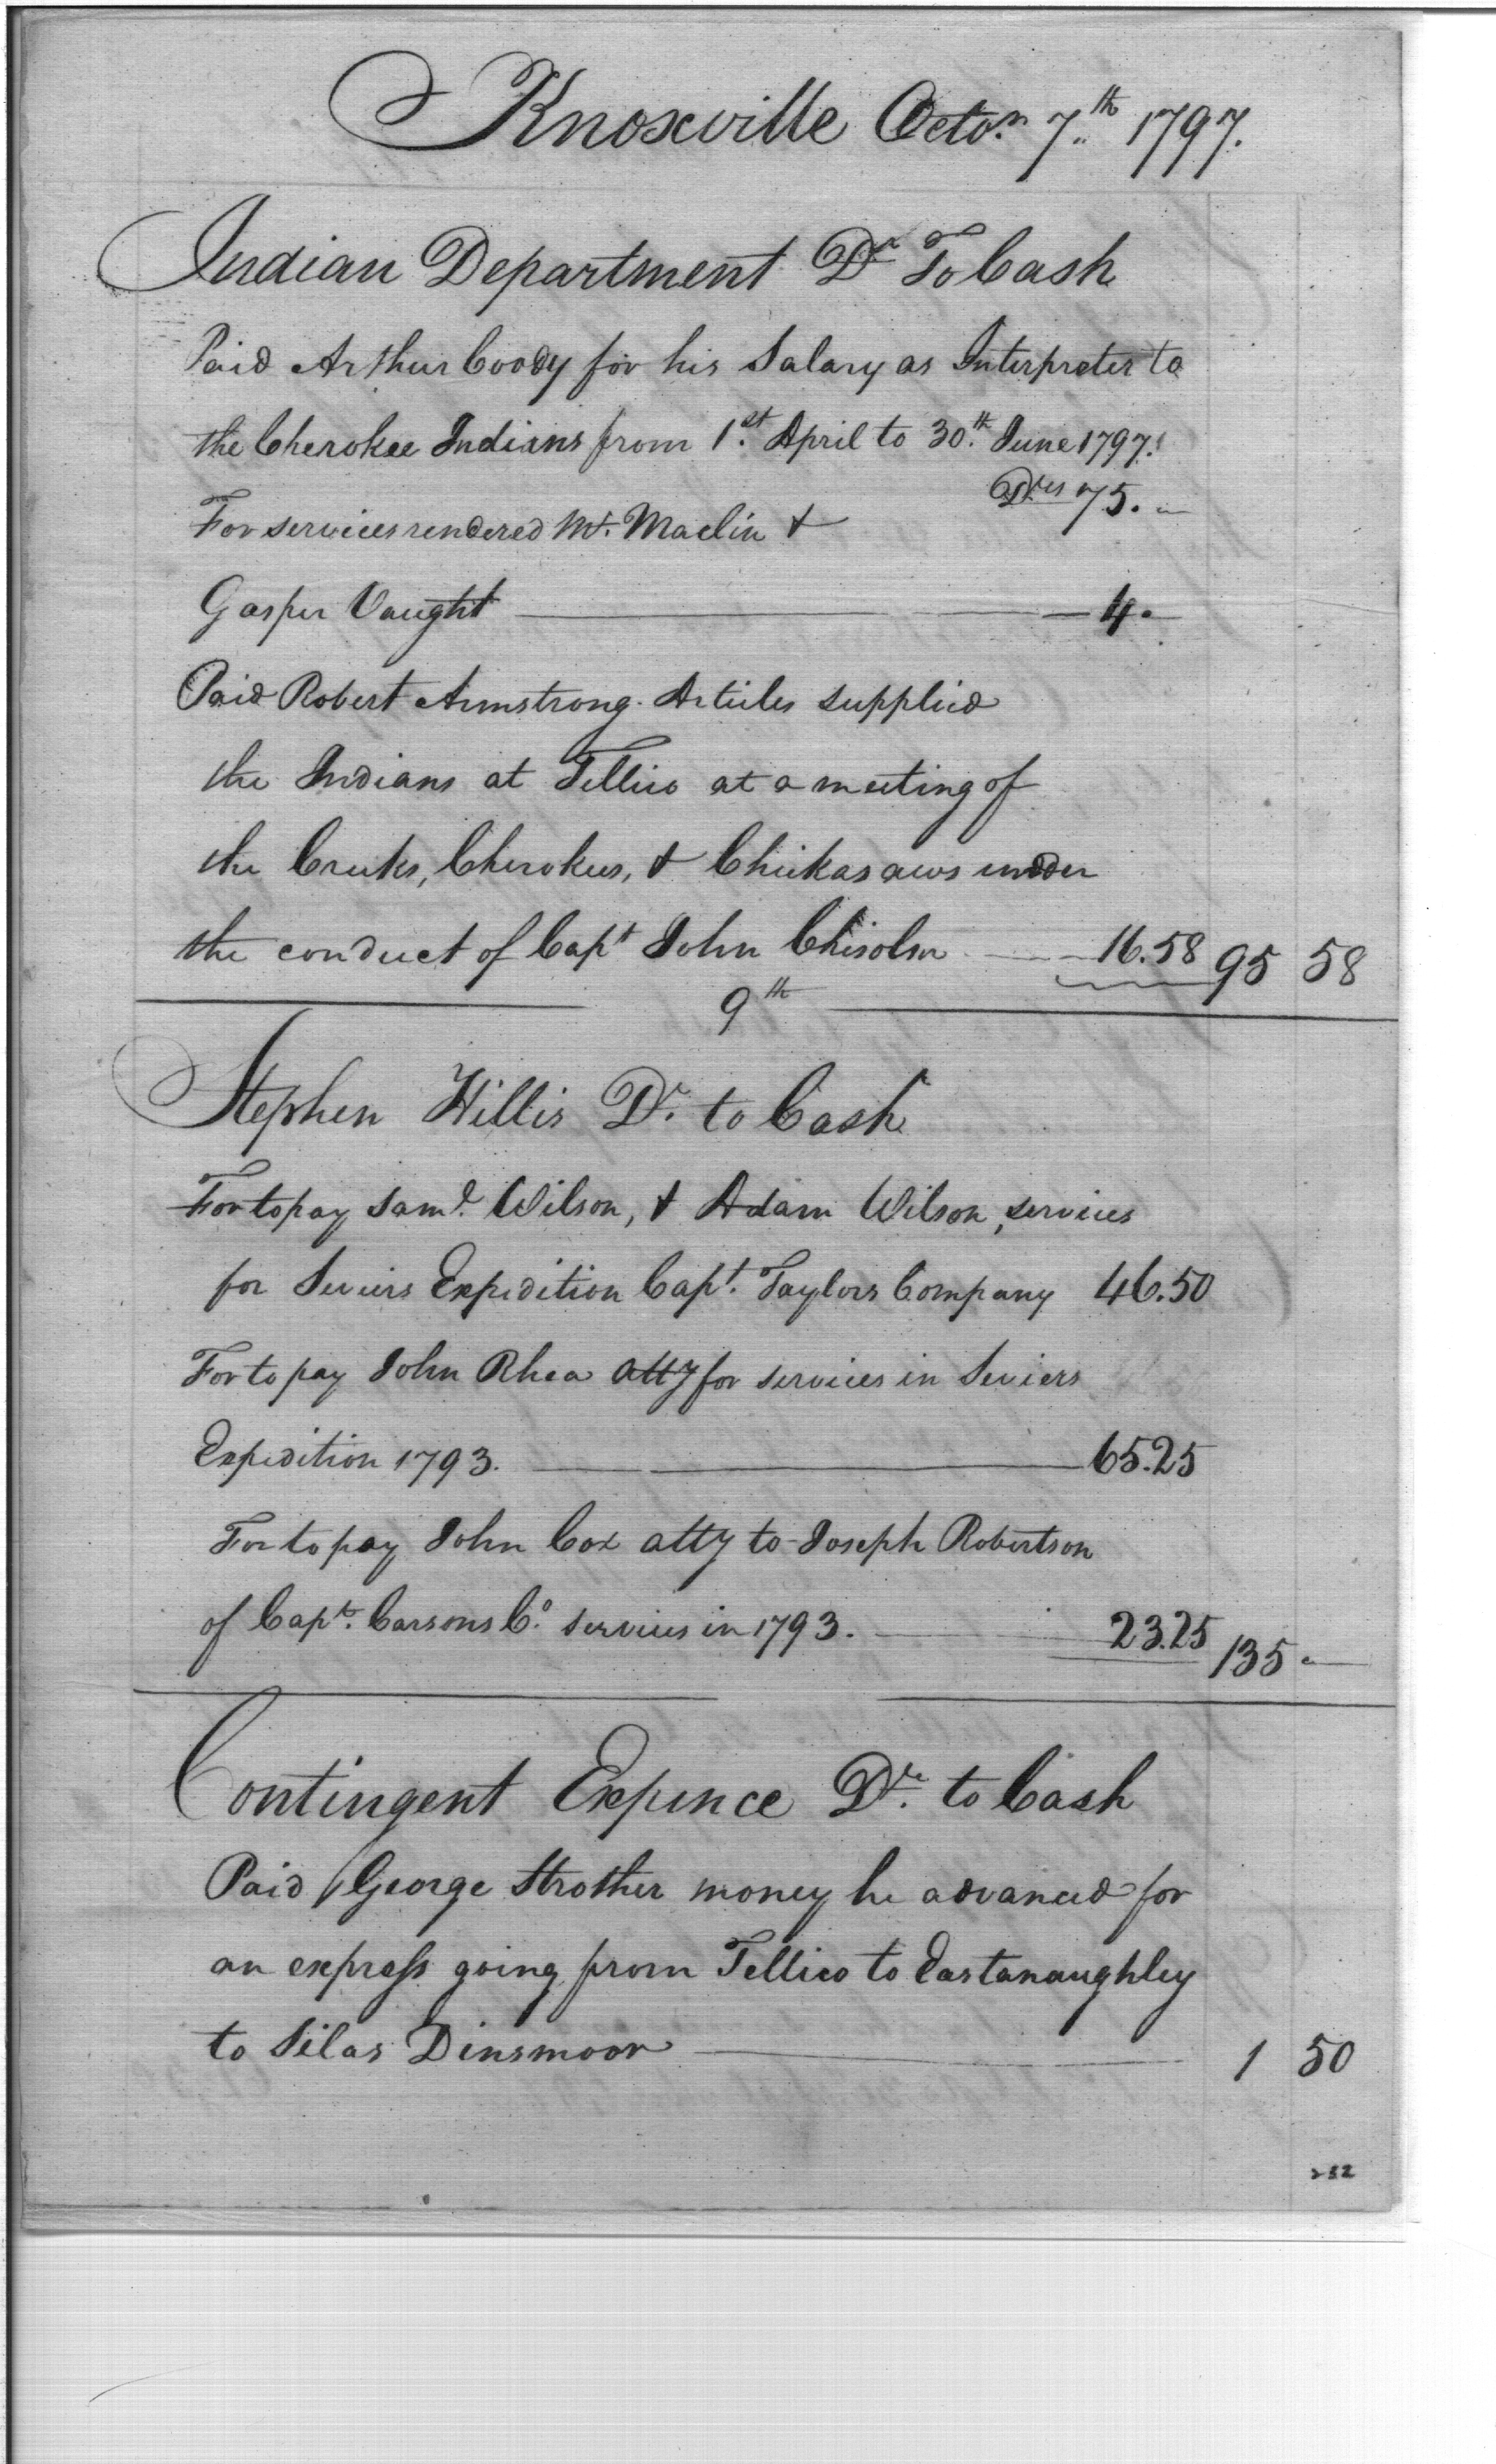 Knoxville Octor. 7.th 1797.
Indian Department Dr To Cash
Paid Arthur Coody for his Salary as Interpreter to
the Cherokee Indians from 1.st April to 30.th June 1797.
Drs 75. —
For services rendered Mr. Maclin &
Gasper Vaught — 4. —
Paid Robert Armstrong. Articles supplied
the Indians at Tellico at a meeting of
the Creeks, Cherokees, & Chickasaws under
the conduct of Capt John Chisolm — 16.58 95 58
9th
Stephen Hillis Dr. to Cash
For to pay Saml. Wilson, & Adam Wilson, services
for Seviers Expedition Capt. Taylors Company 46.50
For to pay John Rhea atty for services in Seviers
Expedition 1793. — 65.25
For to pay John Cox atty to Joseph Robertson
of Capt. Carsons Co. services in 1793. — 23.25 135. —
Contingent Expence Dr. to Cash
Paid George Strother money he advanced for
an express going from Tellico to Eastanaughley
to Silas Dinsmoor — 1 50
252